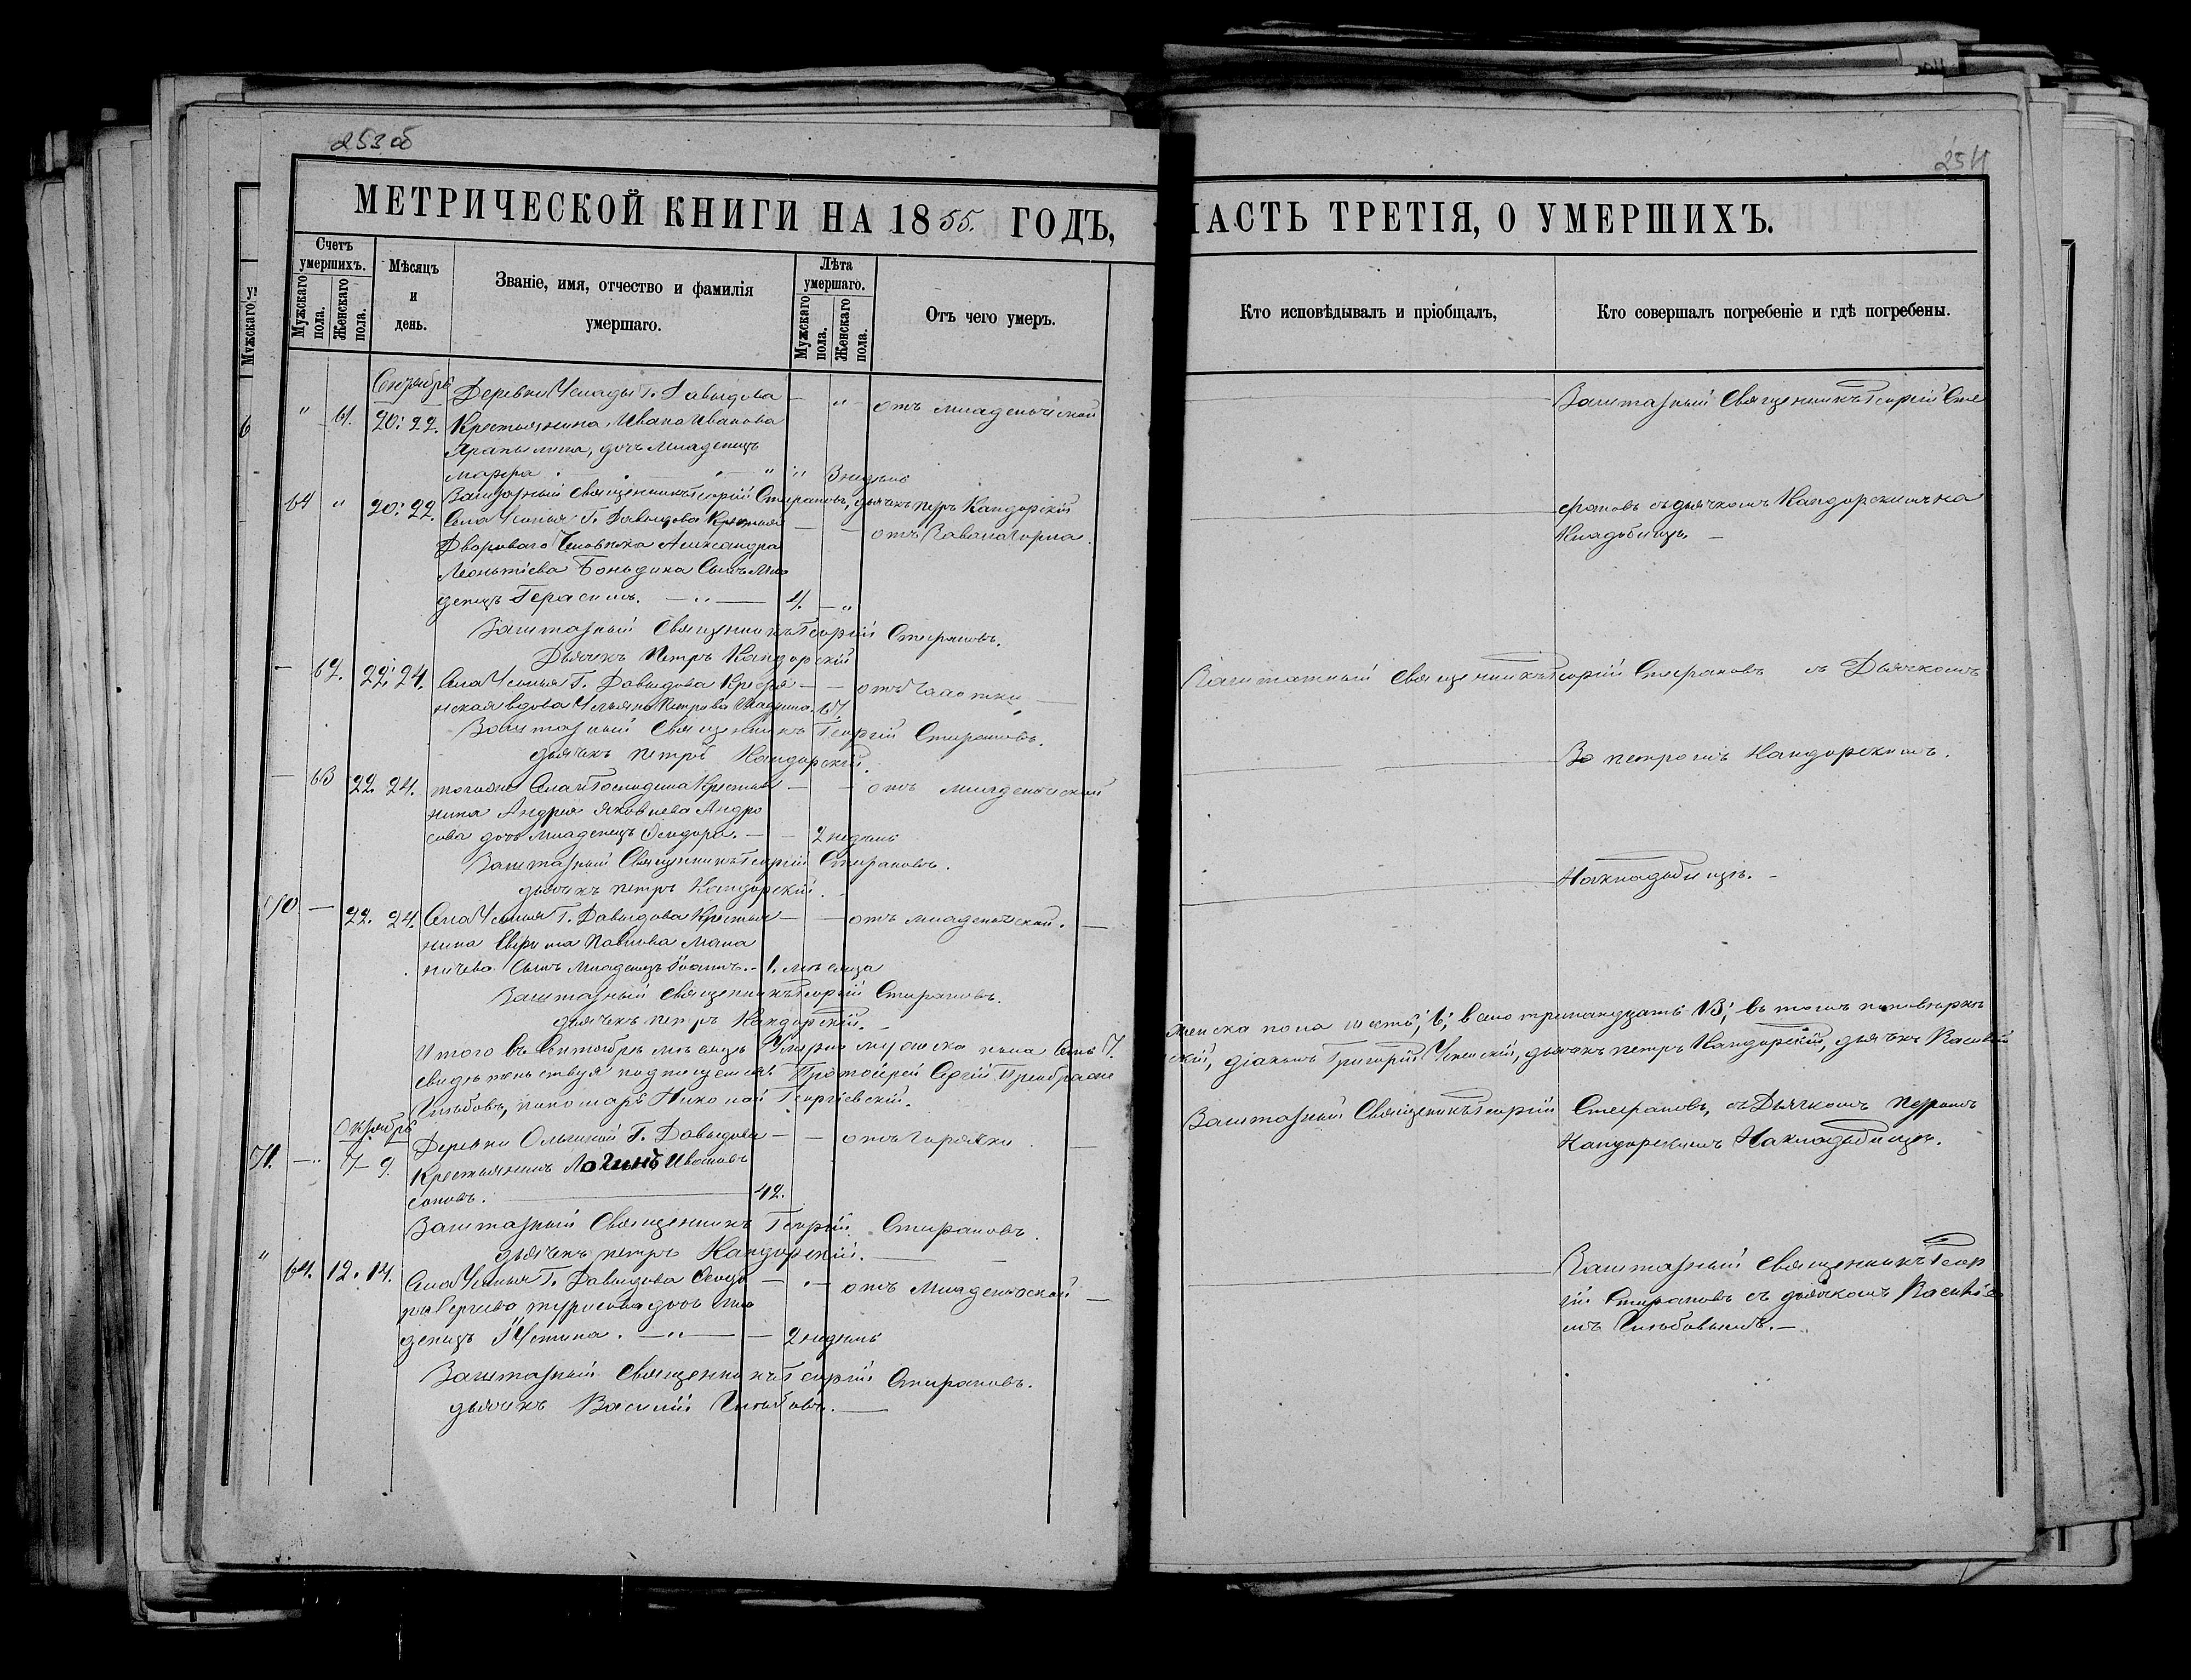 253 об
254
МЕТРИЧЕСКОЙ КНИГИ НА 1855. ГОДЪ,
ЧАСТЬ ТРЕТІЯ, О УМЕРШИХЪ.
Счетъ умершихъ.
Мужскаго пола.
Женскаго пола.
Мѣсяцъ и день.
Званіе, имя, отчество и фамилія умершаго.
Лѣта умершаго.
Мужскаго пола.
Женскаго пола.
Отъ чего умеръ.
Кто исповѣдывалъ и пріобщалъ,
Кто совершалъ погребеніе и гдѣ погребены.
Сентябрь
Деревни Г. Давыдова
" 61. 20: 22. Крестьянина Ивана Иванова
дочь младенецъ
Марфа 3 недѣль
отъ младенческой
Заштатный Священникъ Георгій Сте
Заштатный Священникъ Георгій Стефановъ, дьячекъ Петръ Кандорскій
64 " 20: 22. Села Г. Давыдова
Двороваго Человѣка Александра
Леонтіева Сынъ Мла
денецъ Герасимъ. 4.
фановъ съ дьячкомъ Кандорскимъ на
Кладбищѣ.
Заштатный Священникъ Георгій Стефановъ.
Дьячекъ Петръ Кандорскій
62. 22. 24. Села Г. Давыдова Крестья
нская вдова Ульяна Петрова 67.
отъ Чахотки
Заштатный Священникъ Георгій Стефановъ съ Дьячкомъ
Заштатный Священникъ Георгій Стефановъ.
дьячекъ Петръ Кандорскій.
Петромъ Кандорскимъ.
63 22. 24. тогоже Села и Господина Крестья
нина Андрея Яковлева Андро
сова дочь Младенецъ Ѳеодора. 2 недѣль
отъ младенческой
Заштатный Священникъ Георгій Стефановъ.
дьячекъ Петръ Кандорскій.
На кладбищѣ.
70 22. 24. Села Г. Давыдова Крестья
нина Ефима Павлова Мана
ничева Сынъ Младенецъ Іоаннъ. 1. мѣсяца
отъ младенческой.
Заштатный Священникъ Георгій Стефановъ.
дьячекъ Петръ Кандорскій.
Итого въ Сентябрѣ мѣсяцѣ Умерло мужска пола Семь 7.
женска пола шесть, 6, всего тринандцать 13; въ томъ по повѣркѣ
свидѣтельствуя подписуемся: Протоіерей Сергій Преображен
скій, діаконъ Григорій Успенскій, дьячекъ Петръ Кандорскій, дьячекъ Василій
Глѣбовъ, пономарь Николай Георгіевскій.
Октябрь
71. 7 9. Деревни Ольгиной Г. Давыдова
Крестьянинъ Логинъ Ивановъ
42.
отъ горячки
Заштатный Священникъ Георгій Стефановъ, съ Дьячкомъ Петромъ
Кандорскимъ На кладбищѣ.
Заштатный Священникъ Георгій Стефановъ.
дьячекъ Петръ Кандорскій.
" 64. 12. 14. Села Г. Давыдова
дочь мла
денецъ Устина. 2 недѣль
отъ Младенческой
Заштатный Священникъ Геор
гій Стефановъ съ дьячкомъ Василіе
мъ Глѣбовымъ.
Заштатный Священникъ Георгій Стефановъ.
дьячекъ Василій Глѣбовъ.